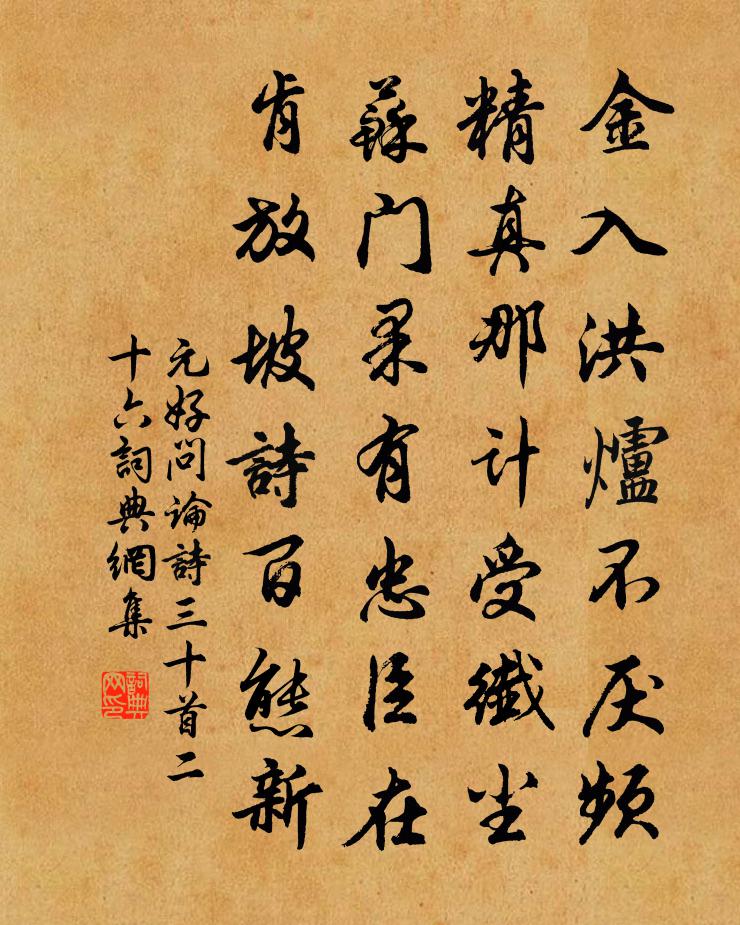 金入洪爐不厌頻
精真那计受纖尘
蘇门果有忠臣在
肯放坡詩百態新
元好问論詩三十首二
十六詞典網集
詞典网印